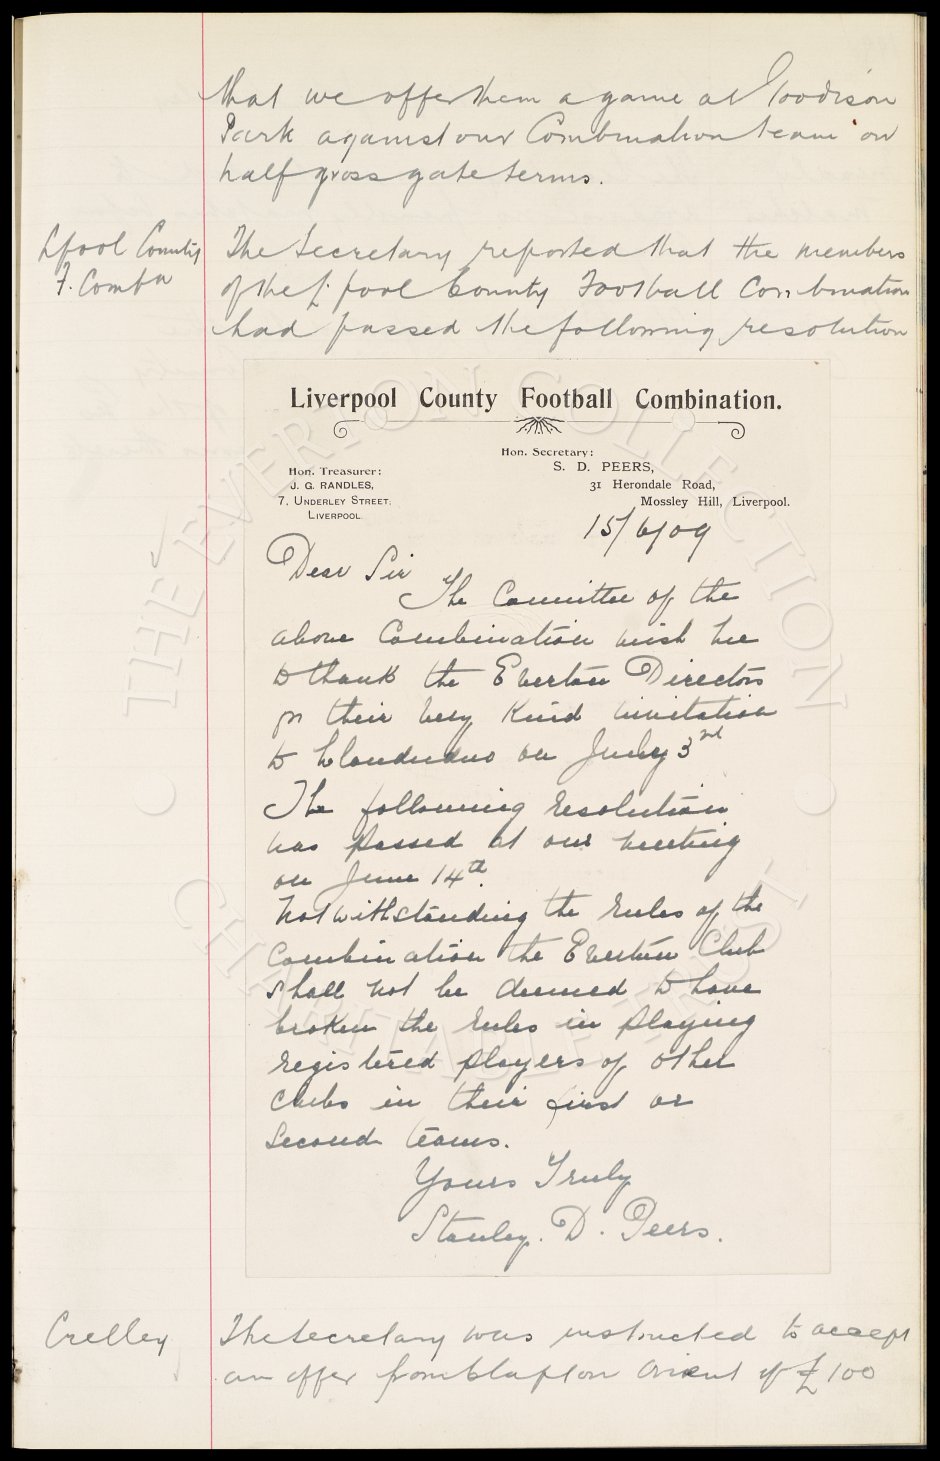 that we offer them a game at Goodison
Park against our Combination team on
half gross gate terms.
Lpool County
F. Combn
The Secretary reported that the members
of the L'pool County Football Combination
had passed the following resolution
Liverpool County Football Combination.
Hon. Treasurer:
J. G. RANDLES,
7, UNDERLEY STREET,
LIVERPOOL.
Hon. Secretary:
S. D. PEERS,
31 Herondale Road,
Mossley Hill, Liverpool.
15/6/09
Dear Sir
The Committee of the
above Combination wish me
to thank the Everton Directors
for their very kind invitation
to Llandudno on July 3rd
The following resolution
was passed at our meeting
on June 14th.
Notwithstanding the rules of the
Combination the Everton Club
shall not be deemed to have
broken the rules in playing
registered players of other
clubs in their first or
second teams.
Yours Truly
Stanley. D. Peers.
Crelley
The Secretary was instructed to accept
an offer from Clapton Orient of £100
THE EVERTON COLLECTION
CHARITABLE TRUST